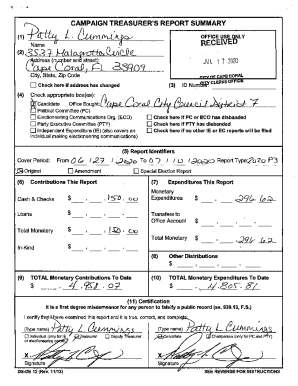 CAMPAIGN TREASURER'S REPORT SUMMARY
(1) Patty L. Cummings
Name
(2) 3537 Malagrotta Circle
Address (number and street)
Cape Coral, FL 33909
City, State, Zip Code
OFFICE USE ONLY
RECEIVED
JUL 17 2020
CITY OF CAPE CORAL
Check here if address has changed
(3) ID Number:
(4) Check appropriate box(es):
Candidate Office Sought: Cape Coral City Council District 7
Political Committee (PC)
Electioneering Communications Org. (ECO)
Party Executive Committee (PTY)
Independent Expenditure (IE) (also covers an individual making electioneering communications)
Check here if PC or ECO has disbanded
Check here if PTY has disbanded
Check here if no other IE or EC reports will be filed
(5) Report Identifiers
Cover Period: From 06 / 27 / 2020 To 07 / 10 / 2020 Report Type: 2020 P3
Original Amendment Special Election Report
(6) Contributions This Report
Cash & Checks $ 150.00
Loans $
Total Monetary $ 150.00
In-Kind $
(7) Expenditures This Report
Monetary
Expenditures $ 296.62
Transfers to
Office Account $
Total Monetary $ 296.62
(8) Other Distributions
$
(9) TOTAL Monetary Contributions To Date
$ 4,958.07
(10) TOTAL Monetary Expenditures To Date
$ 4,805.81
(11) Certification
It is a first degree misdemeanor for any person to falsify a public record (ss. 839.13, F.S.)
I certify that I have examined this report and it is true, correct, and complete:
(Type name) Patty L Cummings
Individual (only for IE Treasurer Deputy Treasurer
or electioneering comm.)
X
Signature
(Type name) Patty L. Cummings
Candidate Chairperson (only for PC and PTY)
X
Signature
DS-DE 12 (Rev. 11/13)
SEE REVERSE FOR INSTRUCTIONS